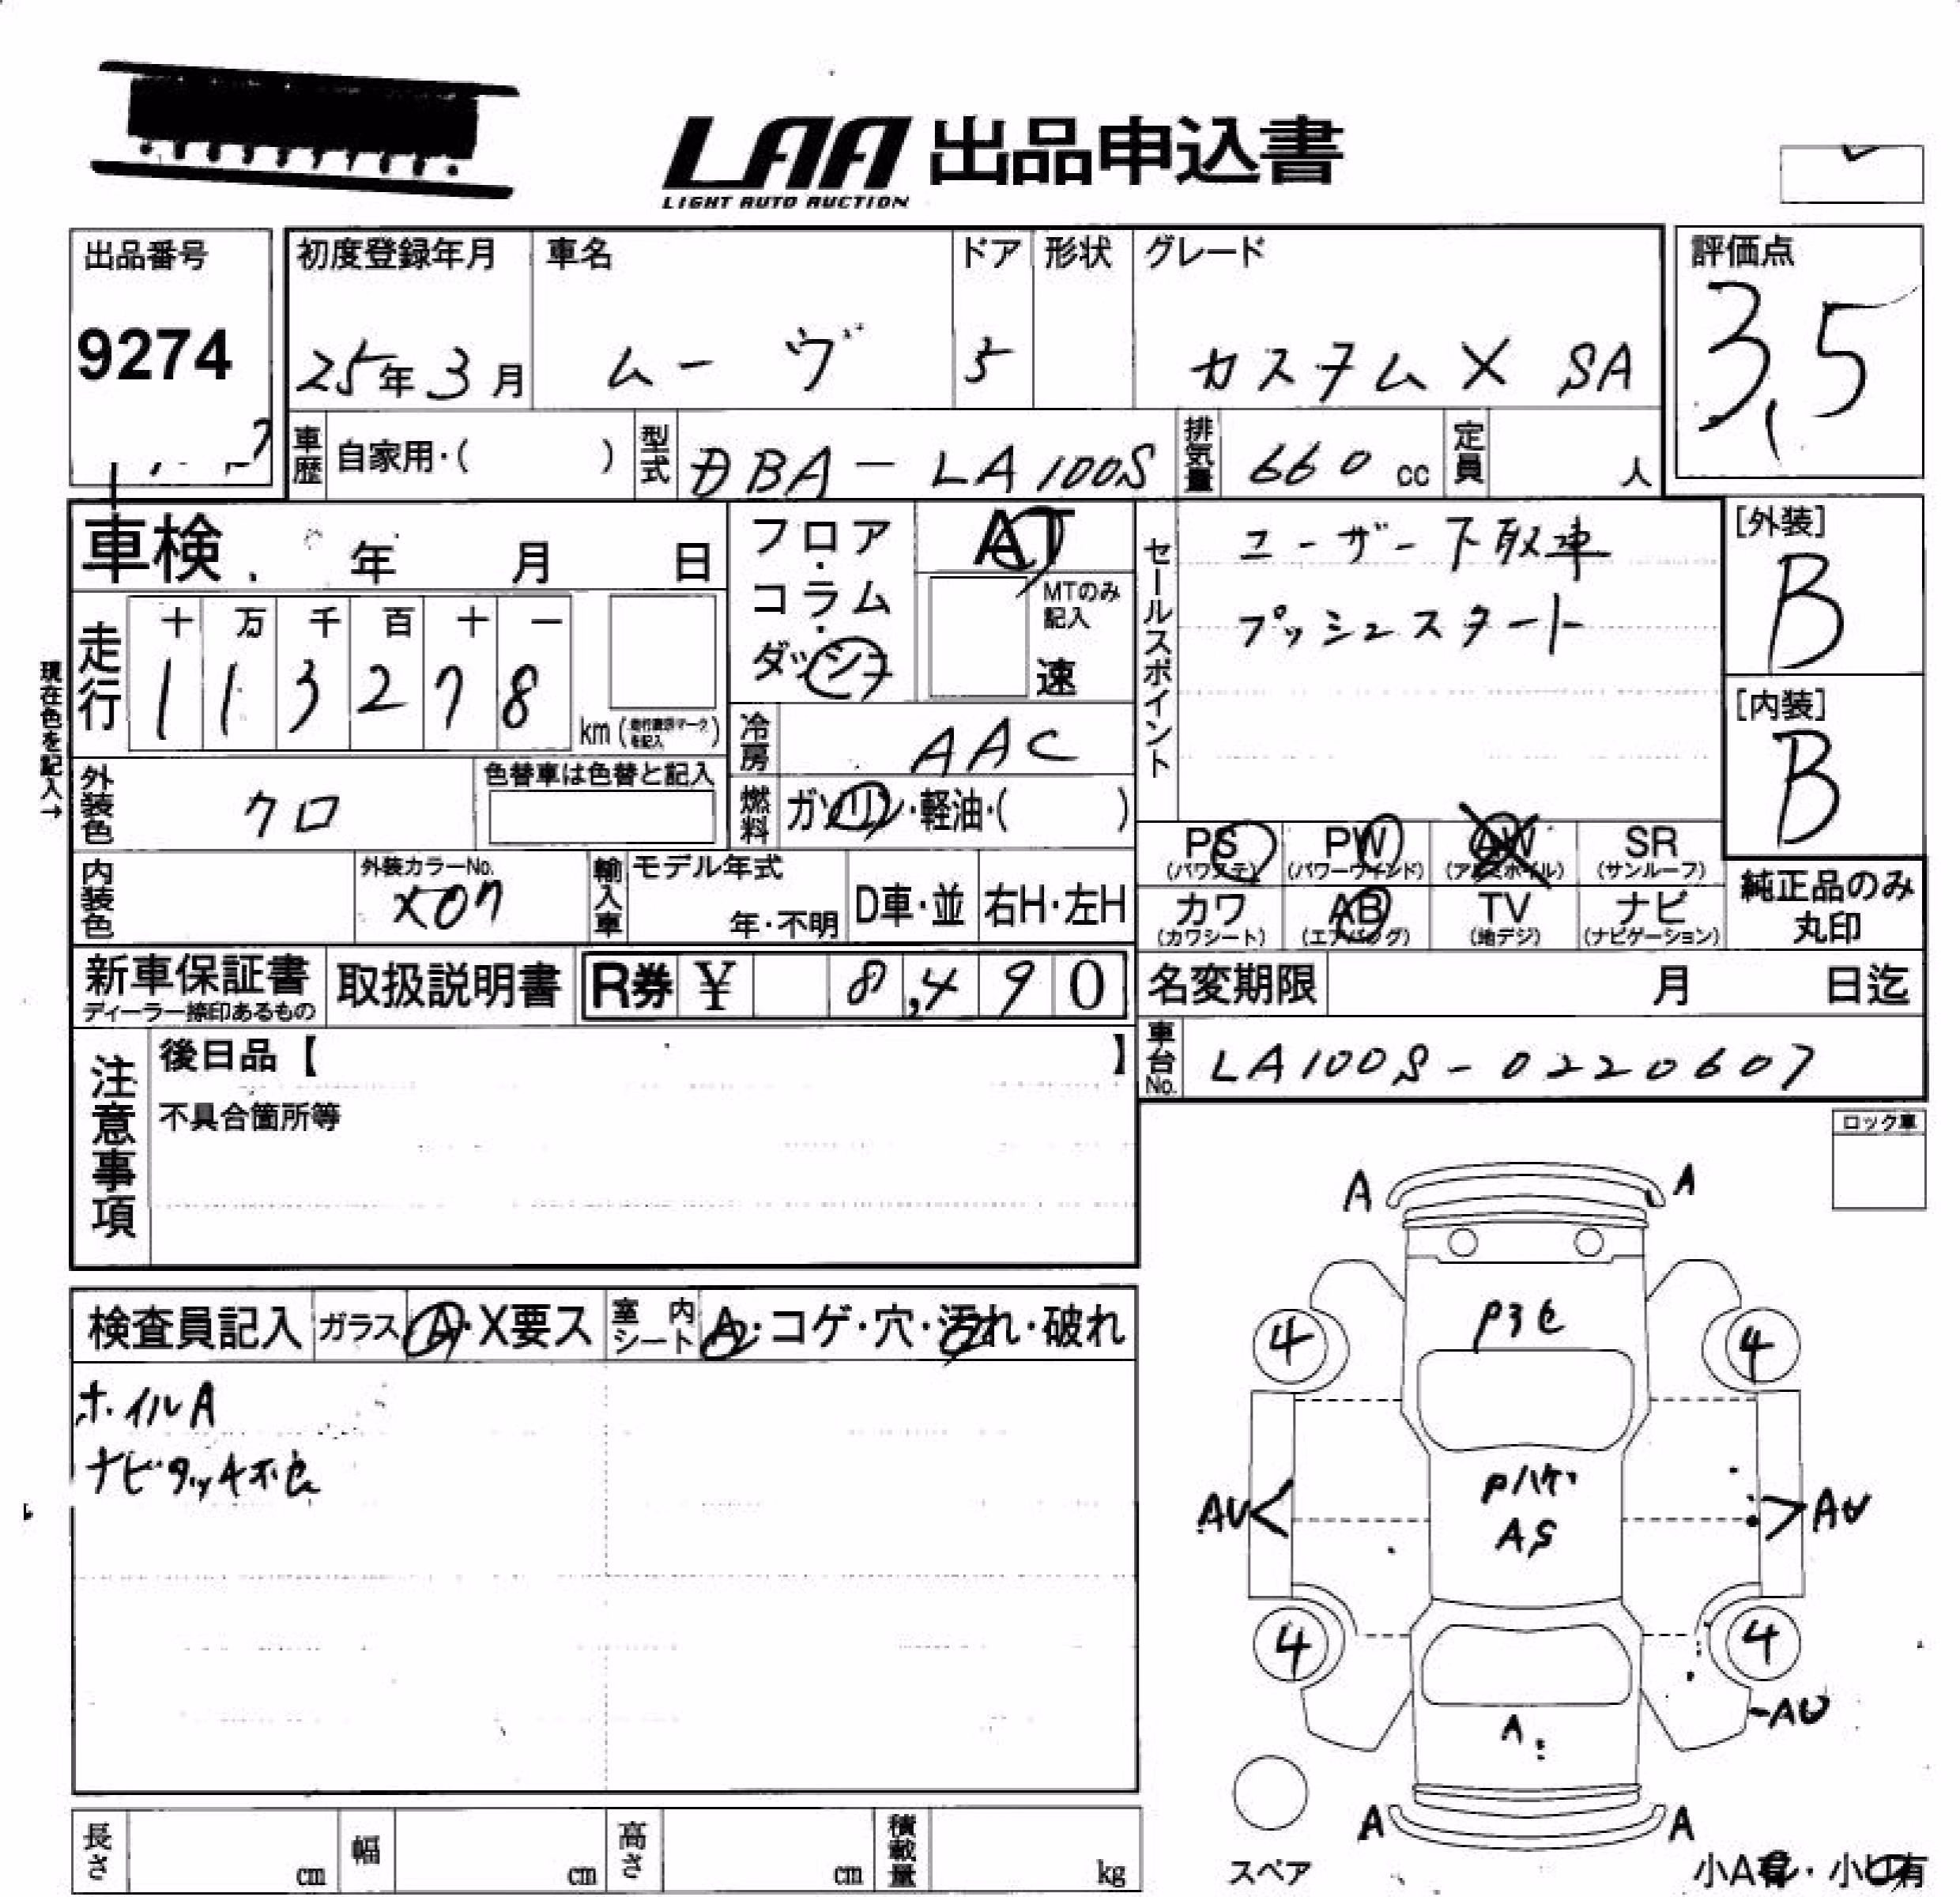 LAA 出品申込書
LIGHT AUTO AUCTION
出品番号
9274
初度登録年月
25年3月
車名
ムーヴ
ドア
5
形状
グレード
カスタム X SA
評価点
3.5
車歴 自家用・( )
型式 DBA-LA100S
排気量 660 cc
定員 人
車検 年 月 日
フロア・コラム・ダッシュ
AT
MTのみ記入
速
セールスポイント
ユーザー下取車
プッシュスタート
[外装]
B
[内装]
B
現在色を記入→
走行
十 万 千 百 十 一
1 1 3 2 7 8
km (走行疑問マークを記入)
冷房 AAC
外装色 クロ
色替車は色替と記入
燃料 ガソリン・軽油・( )
内装色
外装カラーNo.
X07
輸入車
モデル年式
年・不明
D車・並
右H・左H
PS (パワステ)
PW (パワーウインド)
AW (アルミホイル)
SR (サンルーフ)
カワ (カワシート)
AB (エアバッグ)
TV (地デジ)
ナビ (ナビゲーション)
純正品のみ丸印
新車保証書
ディーラー捺印あるもの
取扱説明書
R券 ¥ 8,490
名変期限 月 日迄
車台No. LA100S-0220607
注意事項
後日品【 】
不具合箇所等
ロック車
検査員記入
ガラス A・X要ス
室内シート A・コゲ・穴・汚れ・破れ
ホイルA
ナビタッチ不
A A
4 4
AU AU
Pハゲ
AS
4 4
AU
A
A A
スペア
小A有・小U有
長さ cm
幅 cm
高さ cm
積載量 kg